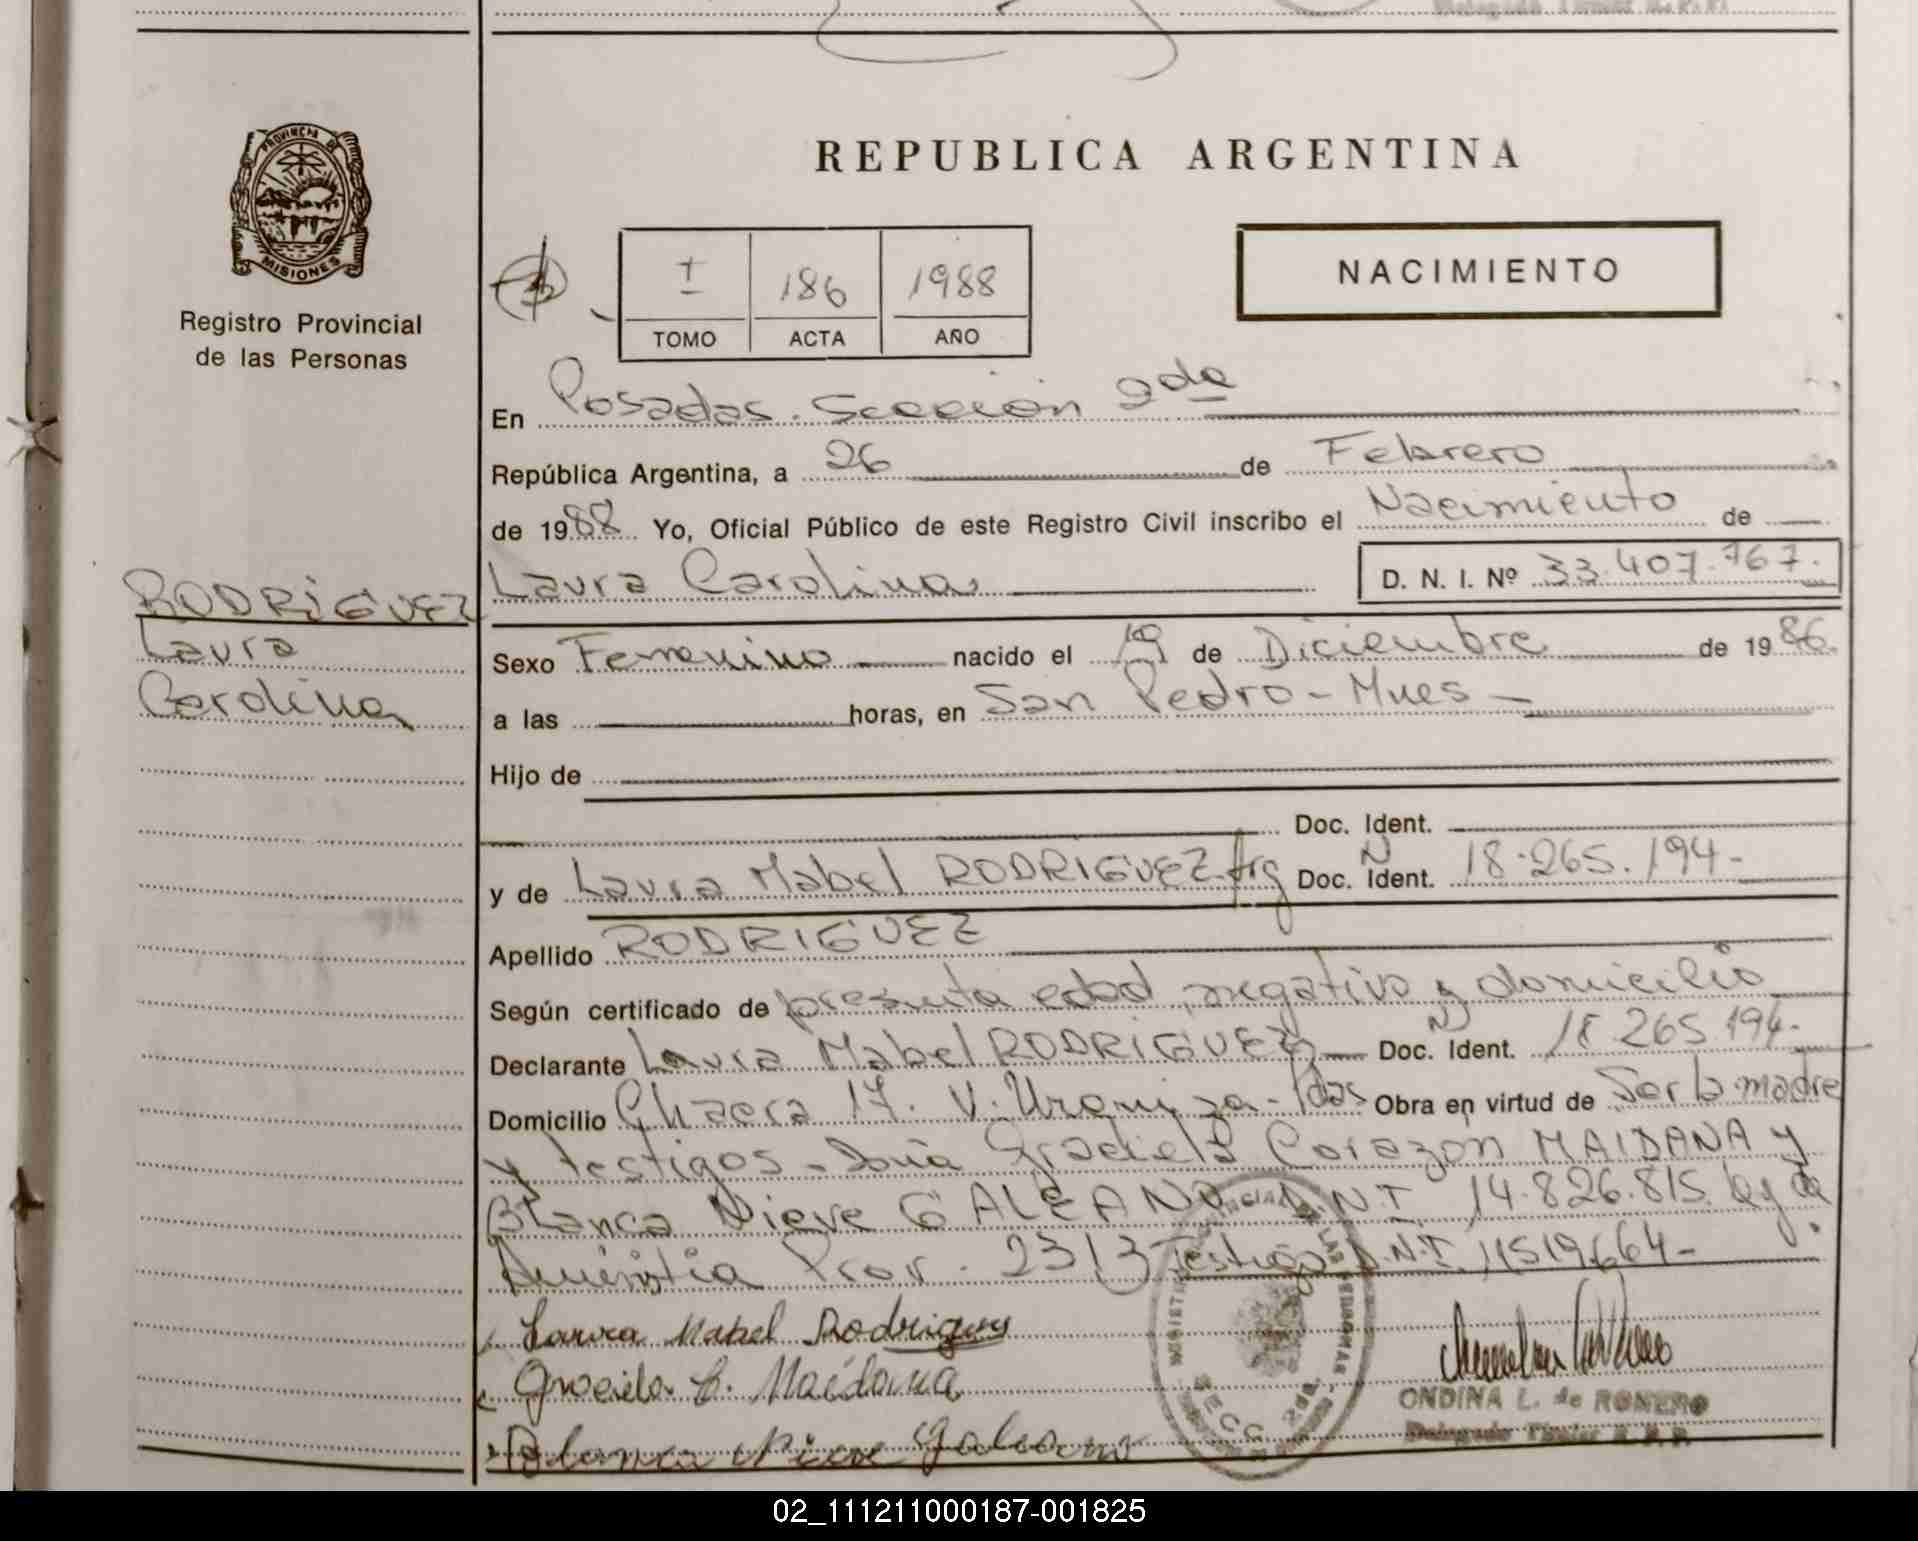 REPUBLICA ARGENTINA
PROVINCIA DE
MISIONES
Registro Provincial
de las Personas
I 186 1988
TOMO ACTA AÑO
NACIMIENTO
En Posadas. Sección 2da
República Argentina, a 26 de Febrero
de 1988 Yo, Oficial Público de este Registro Civil inscribo el Nacimiento de
Laura Carolina D. N. I. Nº 33.407.767.
RODRIGUEZ
Laura
Carolina
Sexo Femenino nacido el 19 de Diciembre de 1986.
a las horas, en San Pedro - Mnes -
Hijo de
Doc. Ident.
y de Laura Mabel RODRIGUEZ. Arg Doc. N Ident. 18.265.194-
Apellido RODRIGUEZ
Según certificado de presunta edad, negativo y domicilio
Declarante Laura Mabel RODRIGUEZ Doc. N Ident. 18.265.194-
Domicilio Chacra 17. V. Urquiza - Pdas Obra en virtud de Ser la madre
y testigos - Doña Graciela Corazón MAIDANA y
Blanca Nieve GALEANO D.N.I 14.826.815 Ley de
Amnistia Prov. 2313 Testigo D.N.I. 11519664-
Laura Mabel Rodriguez
Graciela C. Maidana
Blanca Nieve Galeano
ONDINA L. de ROMERO
Delegado Titular R. P. P.
02_111211000187-001825